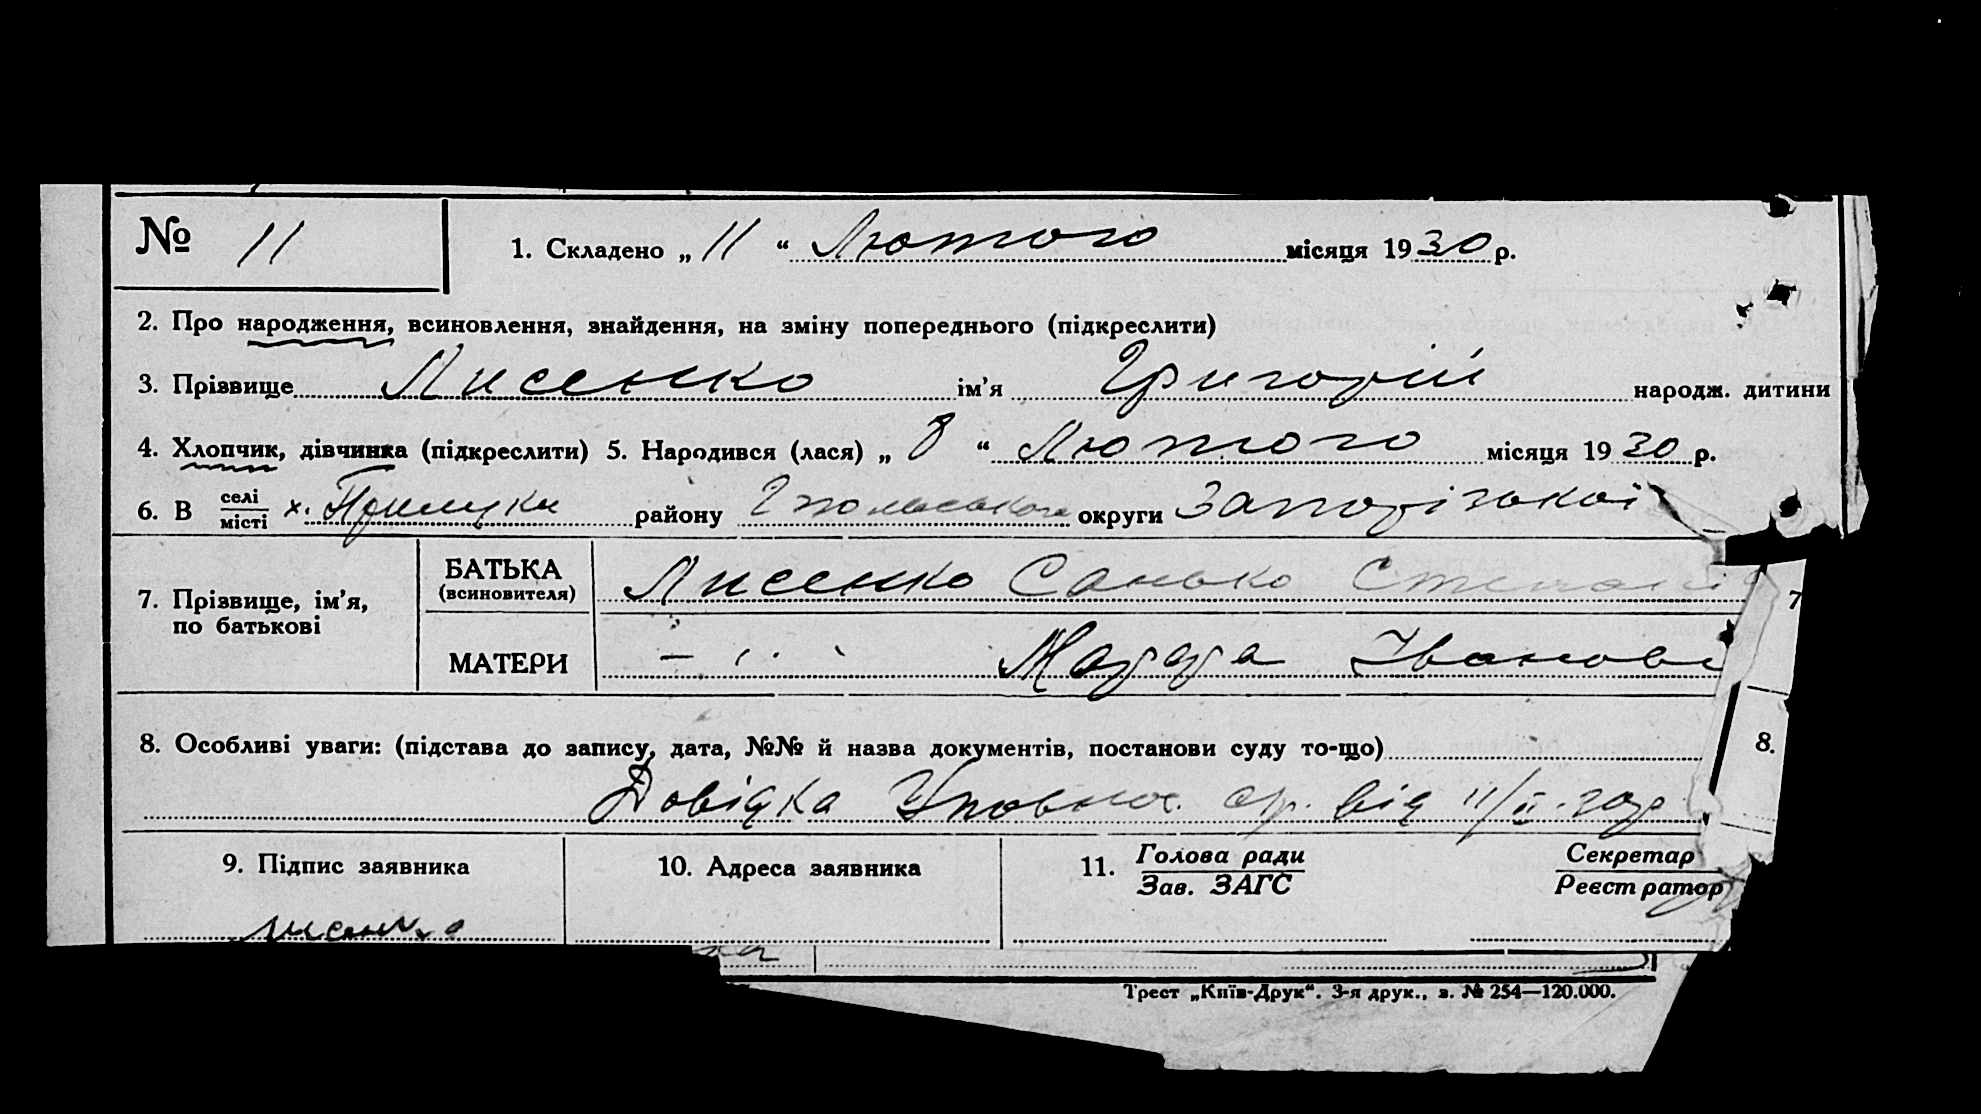 № 11
1. Складено „ 11 “ Лютого місяця 1930 р.
2. Про народження, всиновлення, знайдення, на зміну попереднього (підкреслити)
3. Прізвище Лисенко ім’я Григорій народж. дитини
4. Хлопчик, дівчинка (підкреслити) 5. Народився (лася) „ 8 “ Лютого місяця 1930 р.
6. В селі/місті х. Прилуки району округи Запорізької
7. Прізвище, ім’я, по батькові
БАТЬКА (всиновителя) Лисенко Санько
МАТЕРИ — ״ Іванов
7
8. Особливі уваги: (підстава до запису, дата, №№ й назва документів, постанови суду то-що)
8.
Довідка Уповнов. від 11/II-30р
9. Підпис заявника
10. Адреса заявника
11. Голова ради/Зав. ЗАГС
Секретар/Реєстратор
Лисенко
Трест „Київ-Друк“. 3-я друк., з. № 254—120.000.